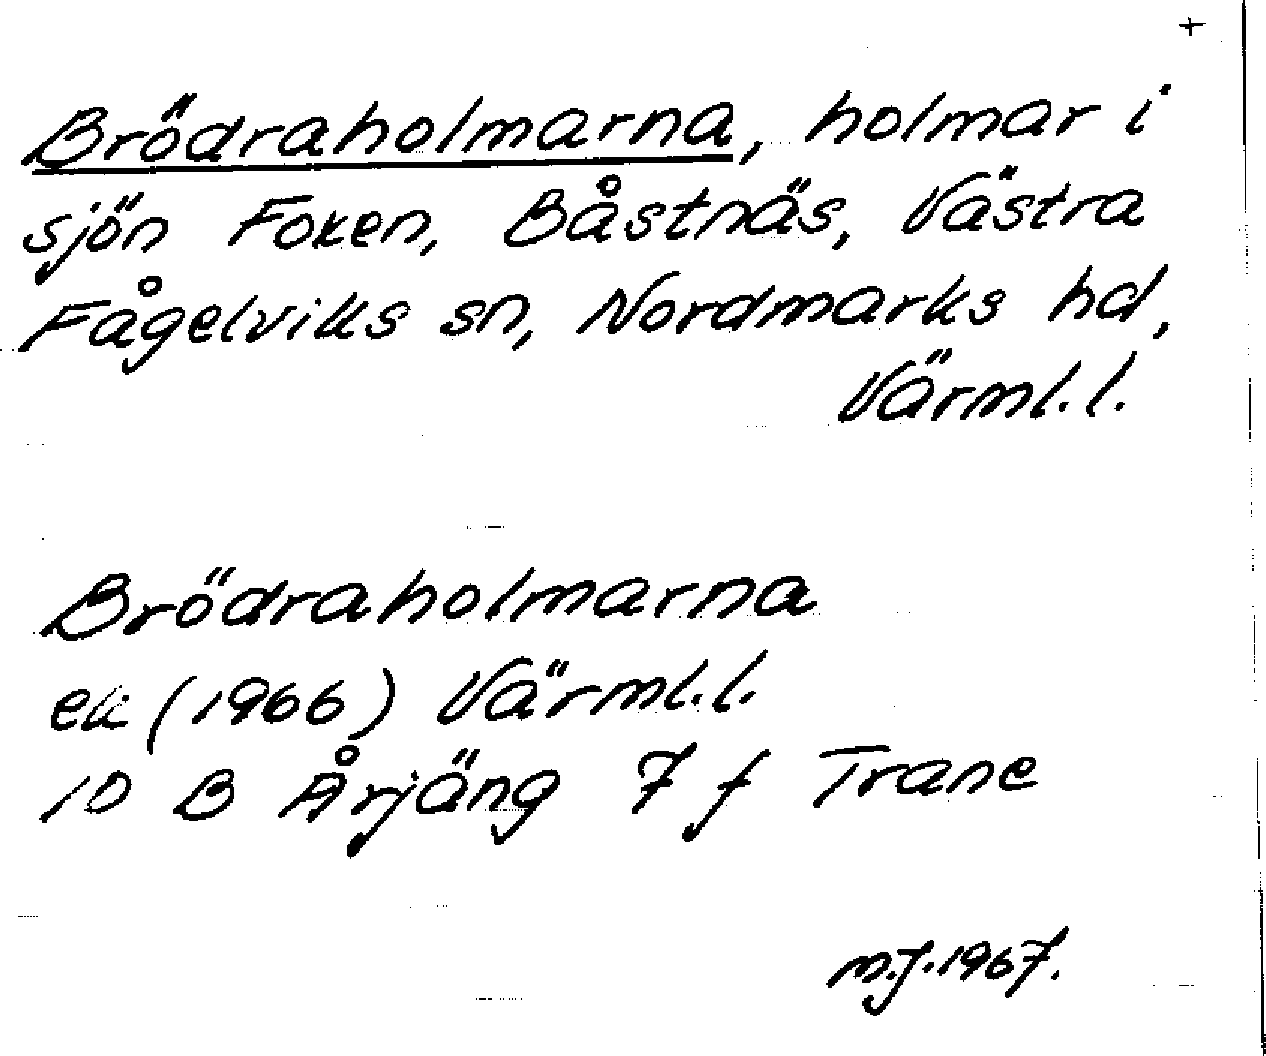 +
Brödraholmarna, holmar i
sjön Foxen, Båstnäs, Västra
Fågelviks sn, Nordmarks hd,
Värml. l.
Brödraholmarna
ek (1966) Värml. l.
10 B Årjäng 7 f Trane
M.J. 1967.